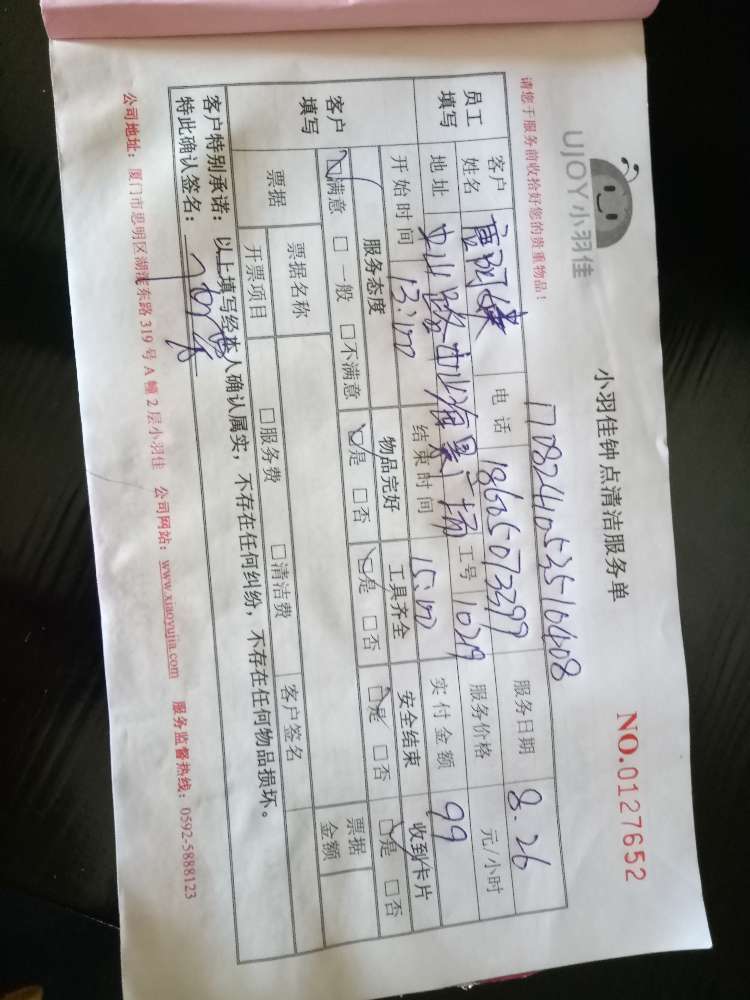 UJOY小羽佳
小羽佳钟点清洁服务单
NO.0127652
请您于服务前收拾好您的贵重物品！
1708241053510408
员工填写
客户姓名
电话 1865073299
服务日期 8.26
地址 中山路
海景广场
工号 1029
服务价格 元/小时
开始时间 13:00
结束时间 15:00
实付金额 99
客户填写
服务态度 物品完好 工具齐全 安全结束 收到卡片
☑满意 □一般 □不满意 ☑是 □否 ☑是 □否 ☑是 □否 ☑是 □否
票据
票据名称
票据金额
开票项目 □服务费 □清洁费
客户签名
客户特别承诺：以上填写经本人确认属实，不存在任何纠纷，不存在任何物品损坏。
特此确认签名：
公司地址：厦门市思明区湖滨东路319号A幢2层小羽佳 公司网站：www.xiaoyujia.com 服务监督热线：0592-5888123